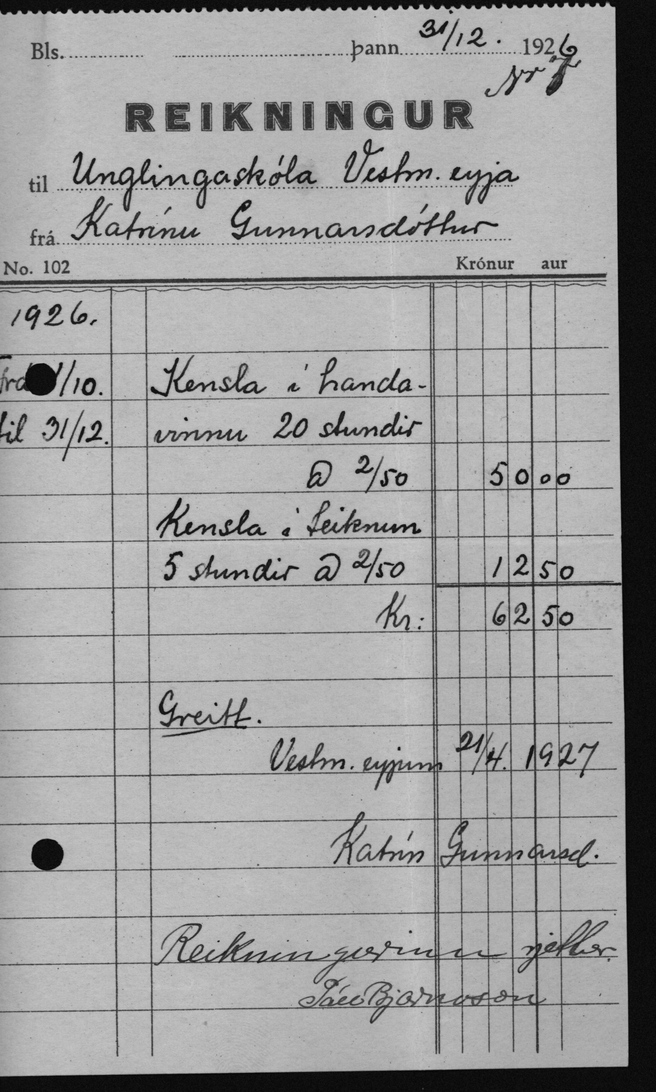 Bls. þann 31/12. 1926
Nr 7
REIKNINGUR
til Unglingaskóla Vestm. eyja
frá Katrínu Gunnarsdóttur
No. 102 Krónur aur
1926.
frá 1/10. Kensla í handa-
til 31/12. vinnu 20 stundir
@ 2/50 50 00
Kensla í teiknun
5 stundir @ 2/50 12 50
Kr: 62 50
Greitt.
Vestm. eyjum 21/4. 1927
Katrín Gunnarsd.
Reikningurinn rjettur.
Páll Bjarnason